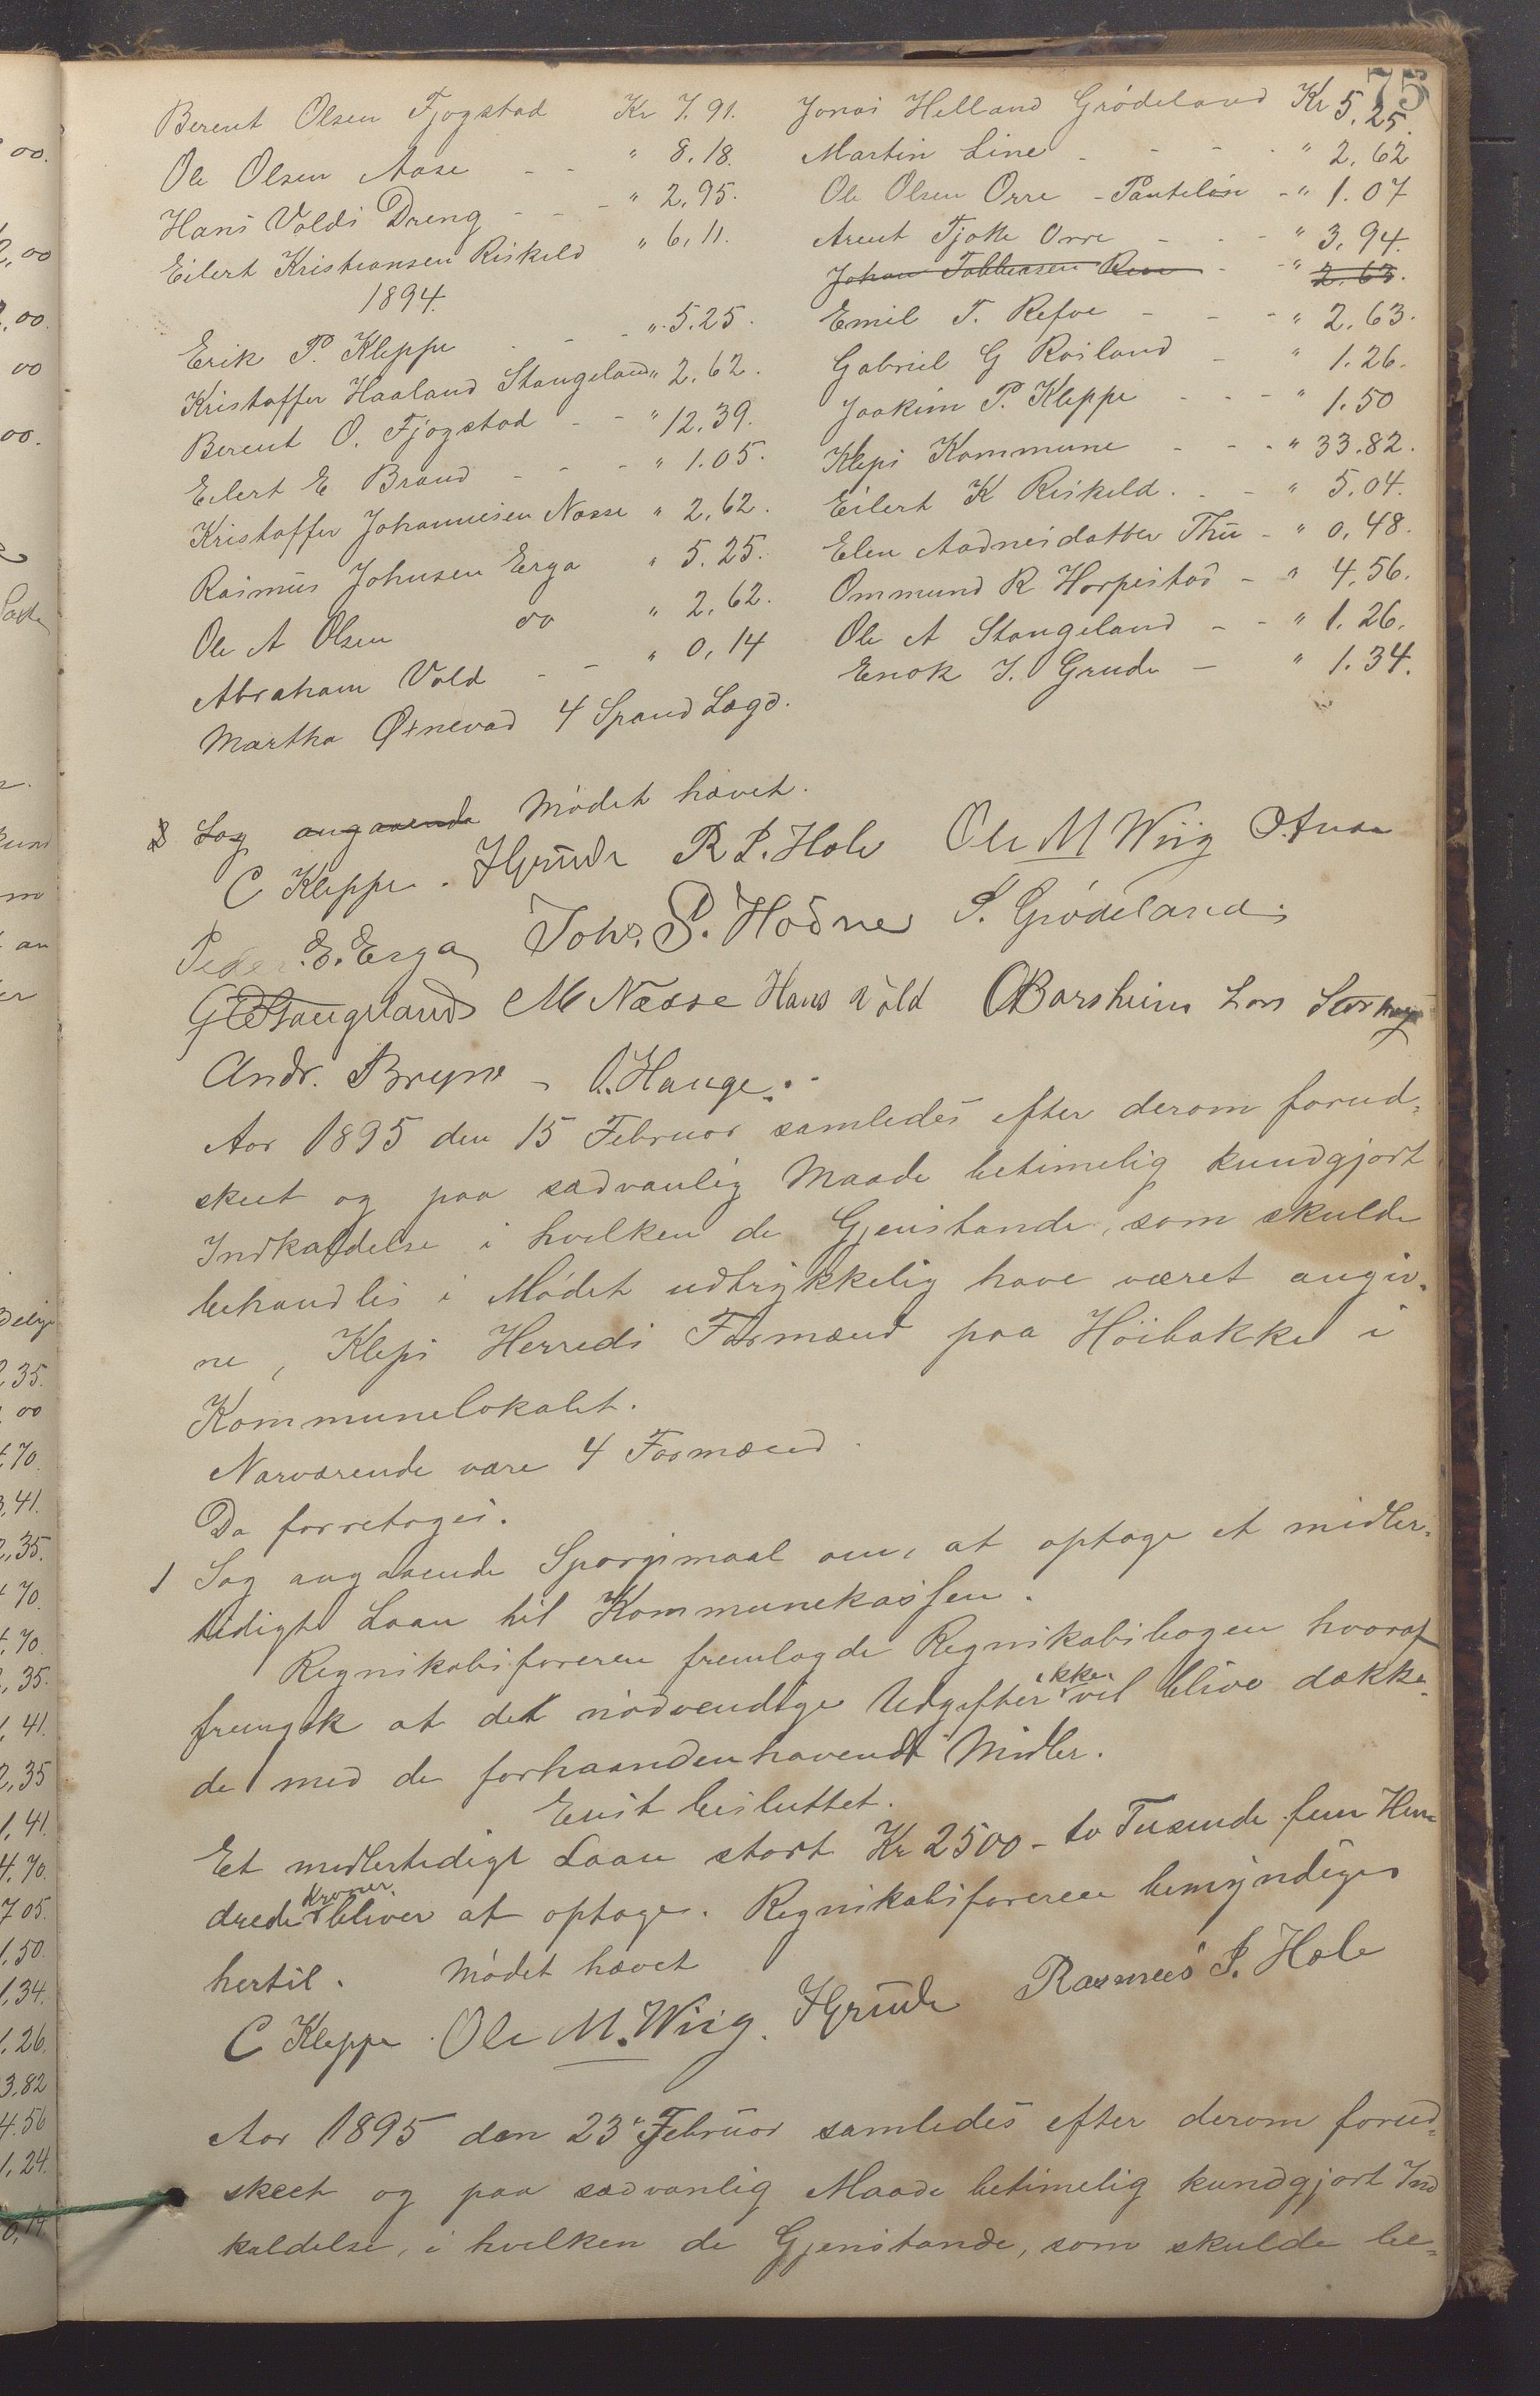 75
Berent Olsen Fjogstad Kr 7.91.
Ole Olsen Aase - - " 8.18.
Hans Volds Dreng - - - " 2.95.
Eilert Kristiansen Riskeld " 6,11.
1894.
Erik P. Kleppe - - - " 5.25.
Kristoffer Haaland Stangeland " 2,62.
Berent O. Fjogstad - - " 12,39.
Eilert E Braud - - - " 1.05.
Kristoffer Johannesen Næsse " 2,62.
Rasmus Johnsen Erga " 5.25.
Ole A Olsen do " 2,62.
Abraham Vold - - " 0,14
Martha Øxnevad 4 Spand Lægd.
Jonas Helland Grødeland Kr 5.25.
Martin Line - - - - " 2,62
Ole Olsen Orre - Panteløse - " 1.07
Arent Tjøtte Orre - - - " 3,94.
Johan Tobbiasen Reve - - " 2.63.
Emil T. Refve - - - " 2,63.
Gabriel G Roiland - " 1.26.
Joakim P. Kleppe - - - " 1.50
Kleps Kommune - - - " 33.82.
Eilert K Riskeld. - - " 5.04.
Elen Aadnesdatter Thu - " 0,48.
Ommund R Horpestad - " 4,56.
Ole A Stangeland - - " 1.26.
Enok I. Grude - " 1.34.
Sag angaaende Mødet hævet.
C Kleppe. I Grude R S. Hole Ole M Wiig
Peder E. Erga Johs. S. Hodne S. Grødeland
G E Stangeland M Næsse Hans Vold O Borsheim Lars
Andr. Bryne - O. Hauge.
Aar 1895 den 15 Februar samledes efter derom forud-
skeet og paa sædvanlig Maade betimelig kundgjort
Indkaldelse i hvilken de Gjenstande, som skulde
behandles i Mødet udtrykkelig have været angiv-
ne, Kleps Herreds Formænd paa Høibakke i
Kommunelokalet.
Nærværende vare 4 Formænd.
Da forretoges.
1 Sag angaaende Spørgsmaal om, at optage et midler-
tidigt Laan til Kommunekassen.
Regnskabsføreren fremlagde Regnskabsbogen hvoraf
fremgik at det nødvendige Udgifter ikke vil blive dække-
de med de forhaandenhavende Midler.
Enst besluttet.
Et midlertidigt Laan stort Kr 2500 - to Tusinde fem Hun
drede kroner bliver at optage. Regnskabsføreren bemyndiges
hertil. Mødet hævet
C Kleppe. Ole M. Wiig. I Grude Rasmus S. Hole
Aar 1895 den 23de Februar samledes efter derom forud-
skeet og paa sædvanlig Maade betimelig kundgjort Ind
kaldelse, i hvilken de Gjenstande, som skulde be-